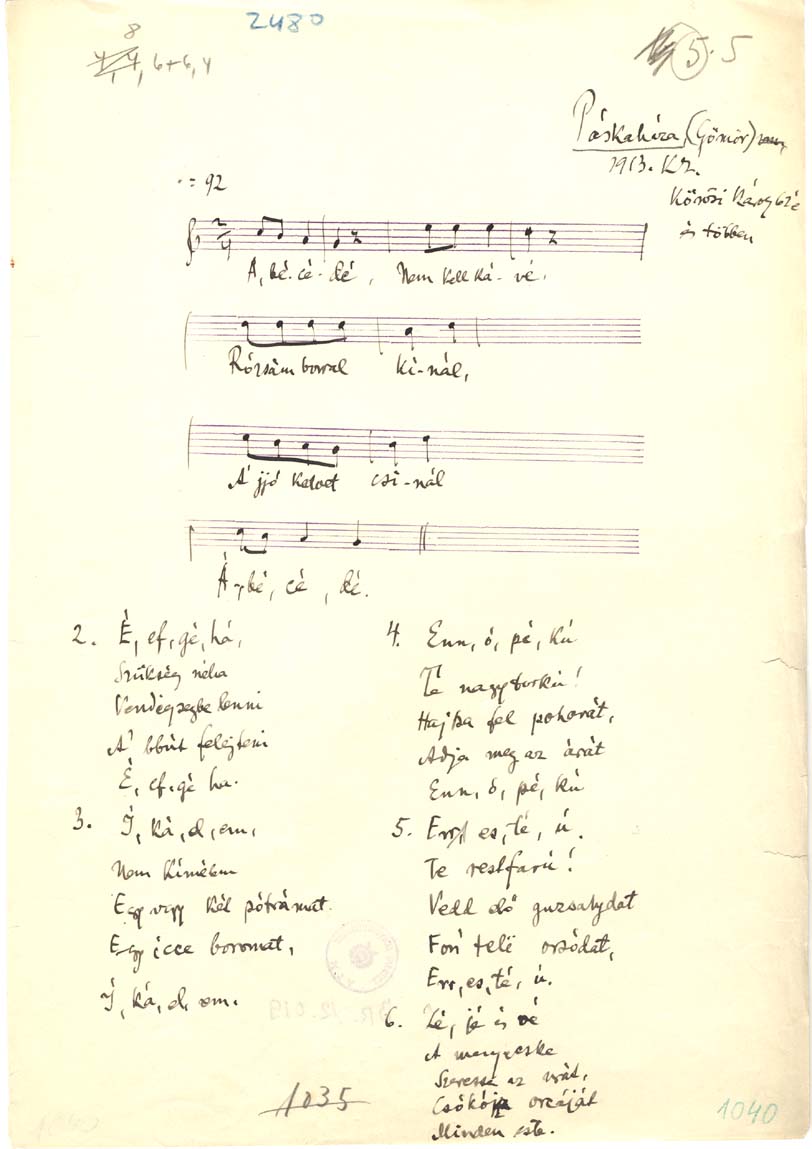 2480
8
4, 4, 6+6, 4
5. 5
Páskaháza (Gömör)
1913. K. Z.
Kőrösi Károlyné
és többen
= 92
A, bé. cé - dé, Nem kell ká - vé.
Rózsám borral kí - nál,
A' jjó kedvet csi - nál
Á - bé, cé, dé.
2. É, ef, gé, há,
Szükség néha
Vendégségbe lenni
A' bbút felejteni
É, ef, gé ha.
3. Í, ká, el, em,
Nem kímélem
Egy vagy két pótrámat.
Egy icce boromat,
Í, ká, el, em.
4. Enn, ó, pé, kú
Te nagytorkú!
Hajtsa fel poharát,
Adja meg az árát
Enn, ó, pé, kú
5. Err, es, té, ú.
Te restfarú!
Vedd elő guzsalydat
Fon' telë orsódat,
Err, es, té, ú.
6. Zé, jé és vé
A menyecske
Szeresse az urát,
Csókójja orcáját
Minden este.
1035
1040